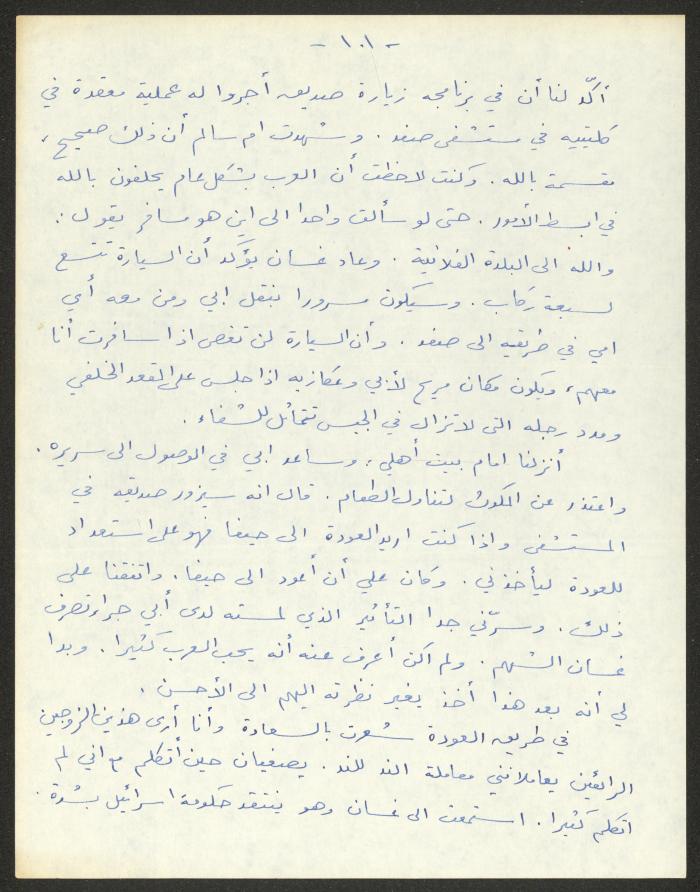 - ١٠١ -
أكّد لنا أن في برنامجه زيارة صديق أجروا له عملية معقدة في
كليتيه في مستشفى صفد . وشهدت ام سالم أن ذلك صحيح ،
مقسمة بالله . وكنت لاحظت أن العرب بشكل عام يحلفون بالله
في ابسط الأمور . حتى لو سألت واحدا الى اين هو مسافر يقول :
والله الى البلدة الفلانية . وعاد غسان يؤكد أن السيارة تتسع
لسبعة ركاب . وسيكون مسرورا بنقل ابي ومن معه أي
امي في طريقه الى صفد . وأن السيارة لن تغص اذا سافرت أنا
معهم ، ويكون مكان مريح لأبي وعكازيه اذا جلس على المقعد الخلفي
ومدد رجله التي لا تزال في الجبس تتماثل للشفاء .
أنزلنا امام بيت أهلي ، وساعد ابي في الوصول الى سريره .
واعتذر عن المكوث لتناول الطعام . قال انه سيزور صديقه في
المستشفى واذا كنت اريد العودة الى حيفا فهو على استعداد
للعودة ليأخذني . وكان علي أن أعود الى حيفا . واتفقنا على
ذلك . وسرّني جدا التأثير الذي لمسته لدى أبي جراء تصرف
غسان الشهم . ولم اكن أعرف عنه أنه يحب العرب كثيرا . وبدا
لي أنه بعد هذا أخذ يغير نظرته اليهم الى الأحسن .
في طريق العودة شعرت بالسعادة وأنا أرى هذين الزوجين
الرائعين يعاملانني معاملة الند للند . يصغيان حين أتكلم مع اني لم
اتكلم كثيرا . استمعت الى غسان وهو ينتقد حكومة اسرائيل بشدة .